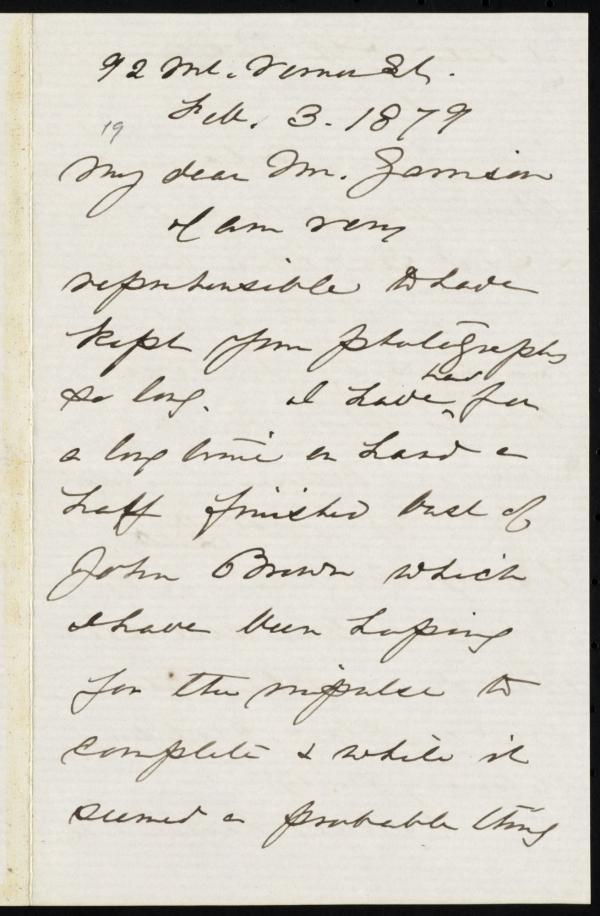 92 Mt. Vernon St.
Feb. 3. 1879
19
My dear Mr. Garrison
I am very
reprehensible to have
kept your photographs
so long. I have had for
a long time on hand a
half finished bust of
John Brown which
I have been hoping
for the impulse to
complete & while it
seemed a probable thing